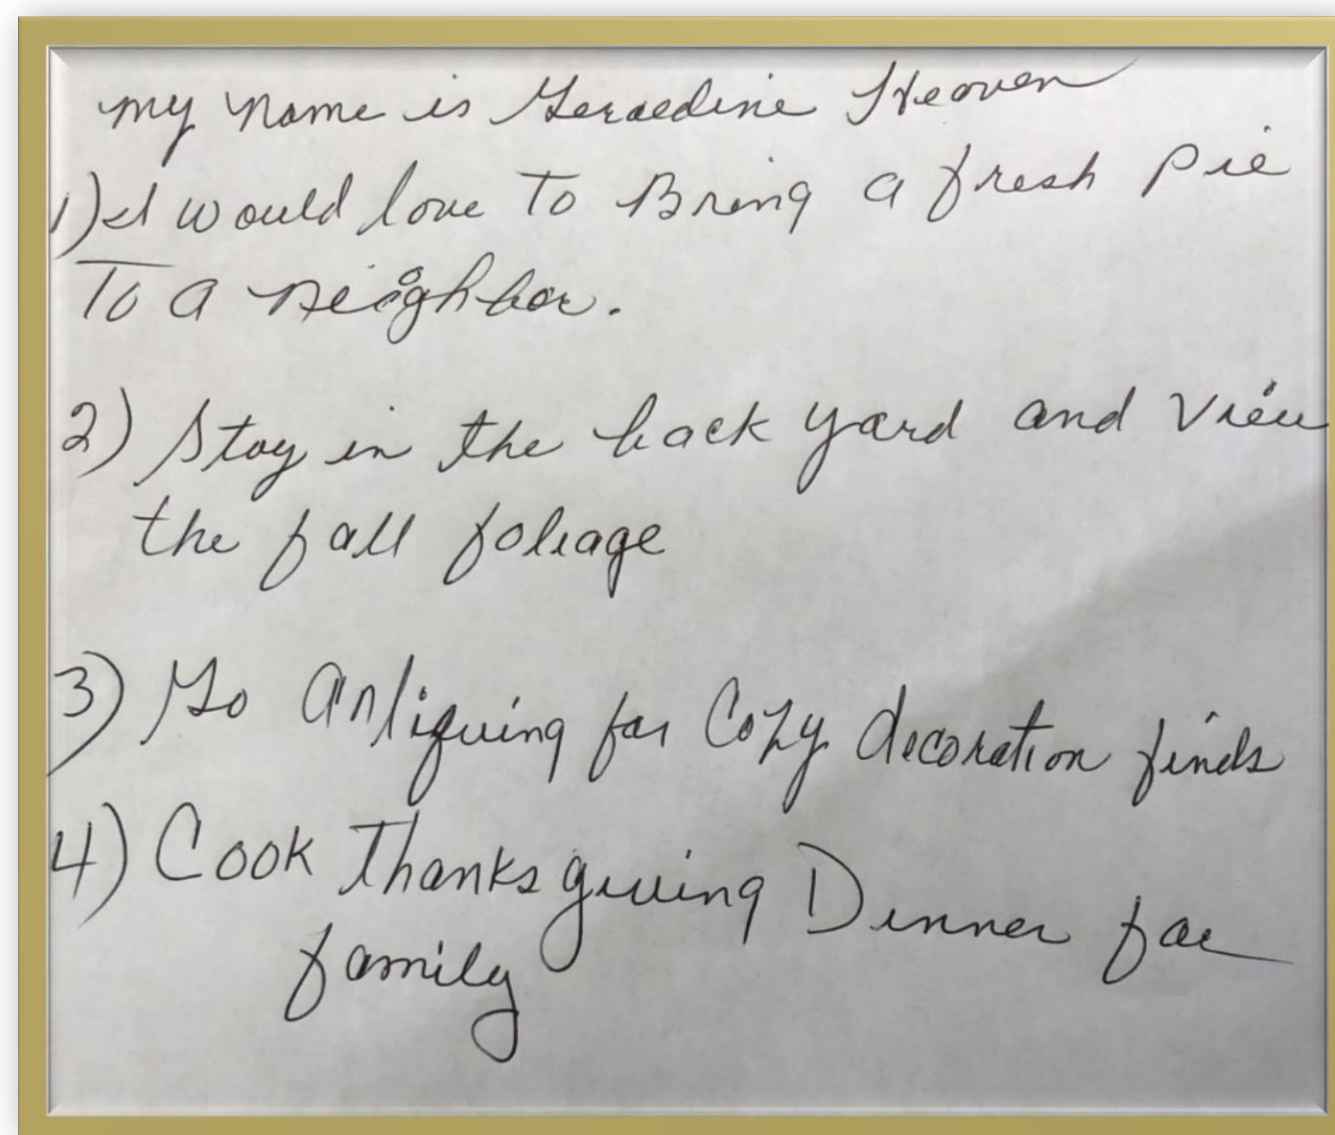 my name is Geraedine Heaven
1) I would love To Bring a fresh Pie
To a neighbor.
2) Stay in the back yard and View
the fall foliage
3) Go antiquing for Cozy decoration finds
4) Cook Thanksgiving Dinner for
family